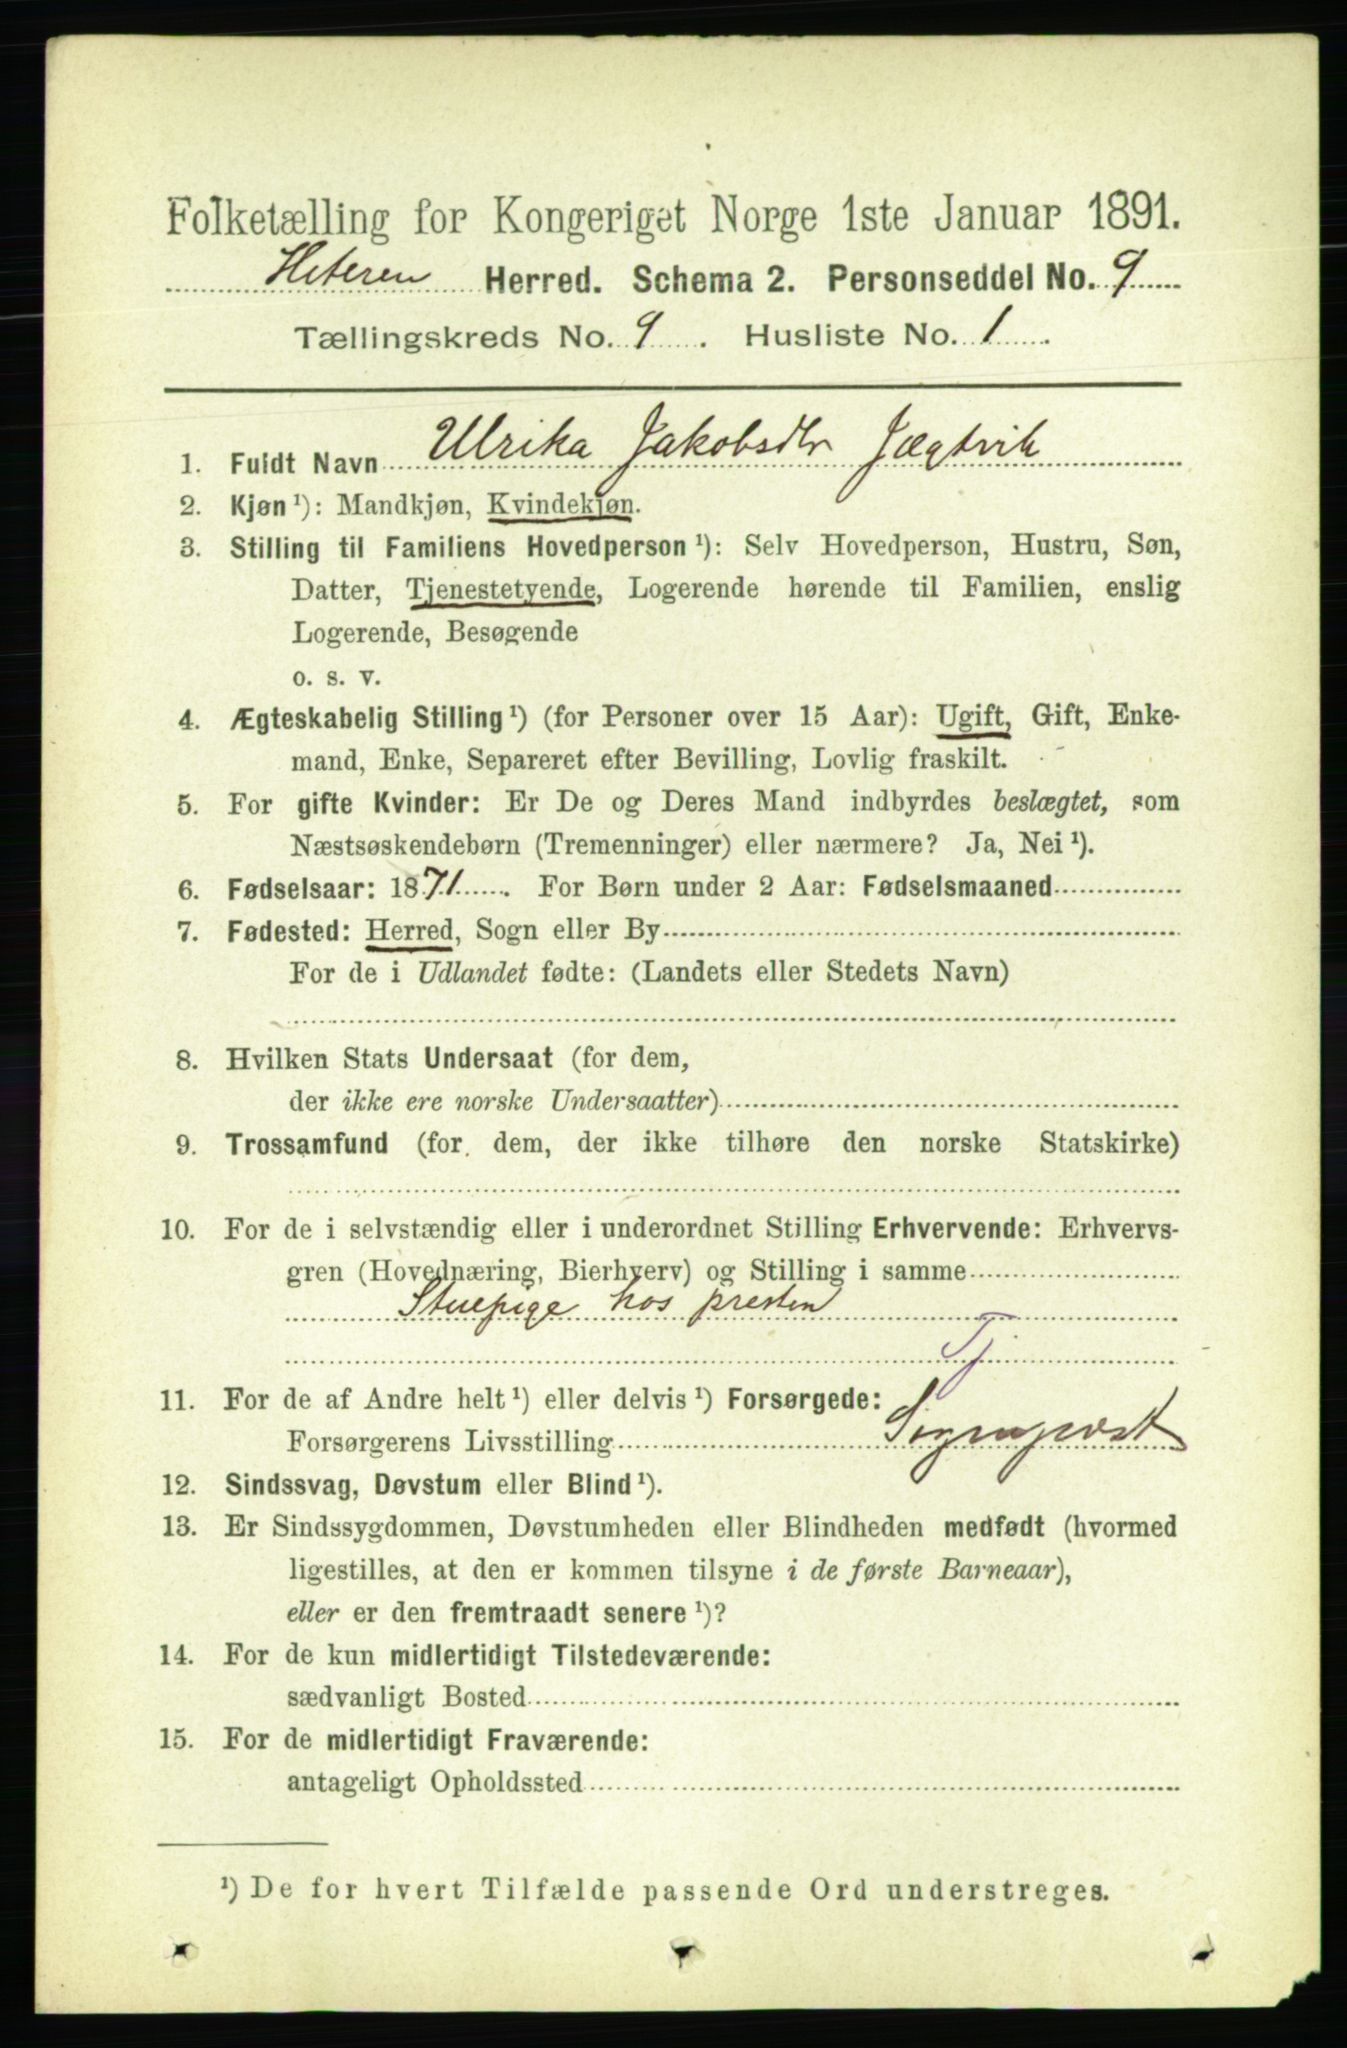 Folketælling for Kongeriget Norge 1ste Januar 1891.
Hiteren Herred. Schema 2. Personseddel No. 9
Tællingskreds No. 9. Husliste No. 1.
1. Fuldt Navn Ulrika Jakobsdtr Jægtvik
2. Kjøn¹): Mandkjøn, Kvindekjøn.
3. Stilling til Familiens Hovedperson¹): Selv Hovedperson, Hustru, Søn,
Datter, Tjenestetyende, Logerende hørende til Familien, enslig
Logerende, Besøgende
o. s. v.
4. Ægteskabelig Stilling¹) (for Personer over 15 Aar): Ugift, Gift, Enke-
mand, Enke, Separeret efter Bevilling, Lovlig fraskilt.
5. For gifte Kvinder: Er De og Deres Mand indbyrdes beslægtet, som
Næstsøskendebørn (Tremenninger) eller nærmere? Ja, Nei¹).
6. Fødselsaar: 1871. For Børn under 2 Aar: Fødselsmaaned
7. Fødested: Herred, Sogn eller By
For de i Udlandet fødte: (Landets eller Stedets Navn)
8. Hvilken Stats Undersaat (for dem,
der ikke ere norske Undersaatter)
9. Trossamfund (for dem, der ikke tilhøre den norske Statskirke)
10. For de i selvstændig eller i underordnet Stilling Erhvervende: Erhvervs-
gren (Hovednæring, Bierhverv) og Stilling i samme
Stuepige hos presten
Tj
11. For de af Andre helt¹) eller delvis¹) Forsørgede:
Forsørgerens Livsstilling Sogneprest
12. Sindssvag, Døvstum eller Blind¹).
13. Er Sindssygdommen, Døvstumheden eller Blindheden medfødt (hvormed
ligestilles, at den er kommen tilsyne i de første Barneaar),
eller er den fremtraadt senere¹)?
14. For de kun midlertidigt Tilstedeværende:
sædvanligt Bosted
15. For de midlertidigt Fraværende:
antageligt Opholdssted
¹) De for hvert Tilfælde passende Ord understreges.